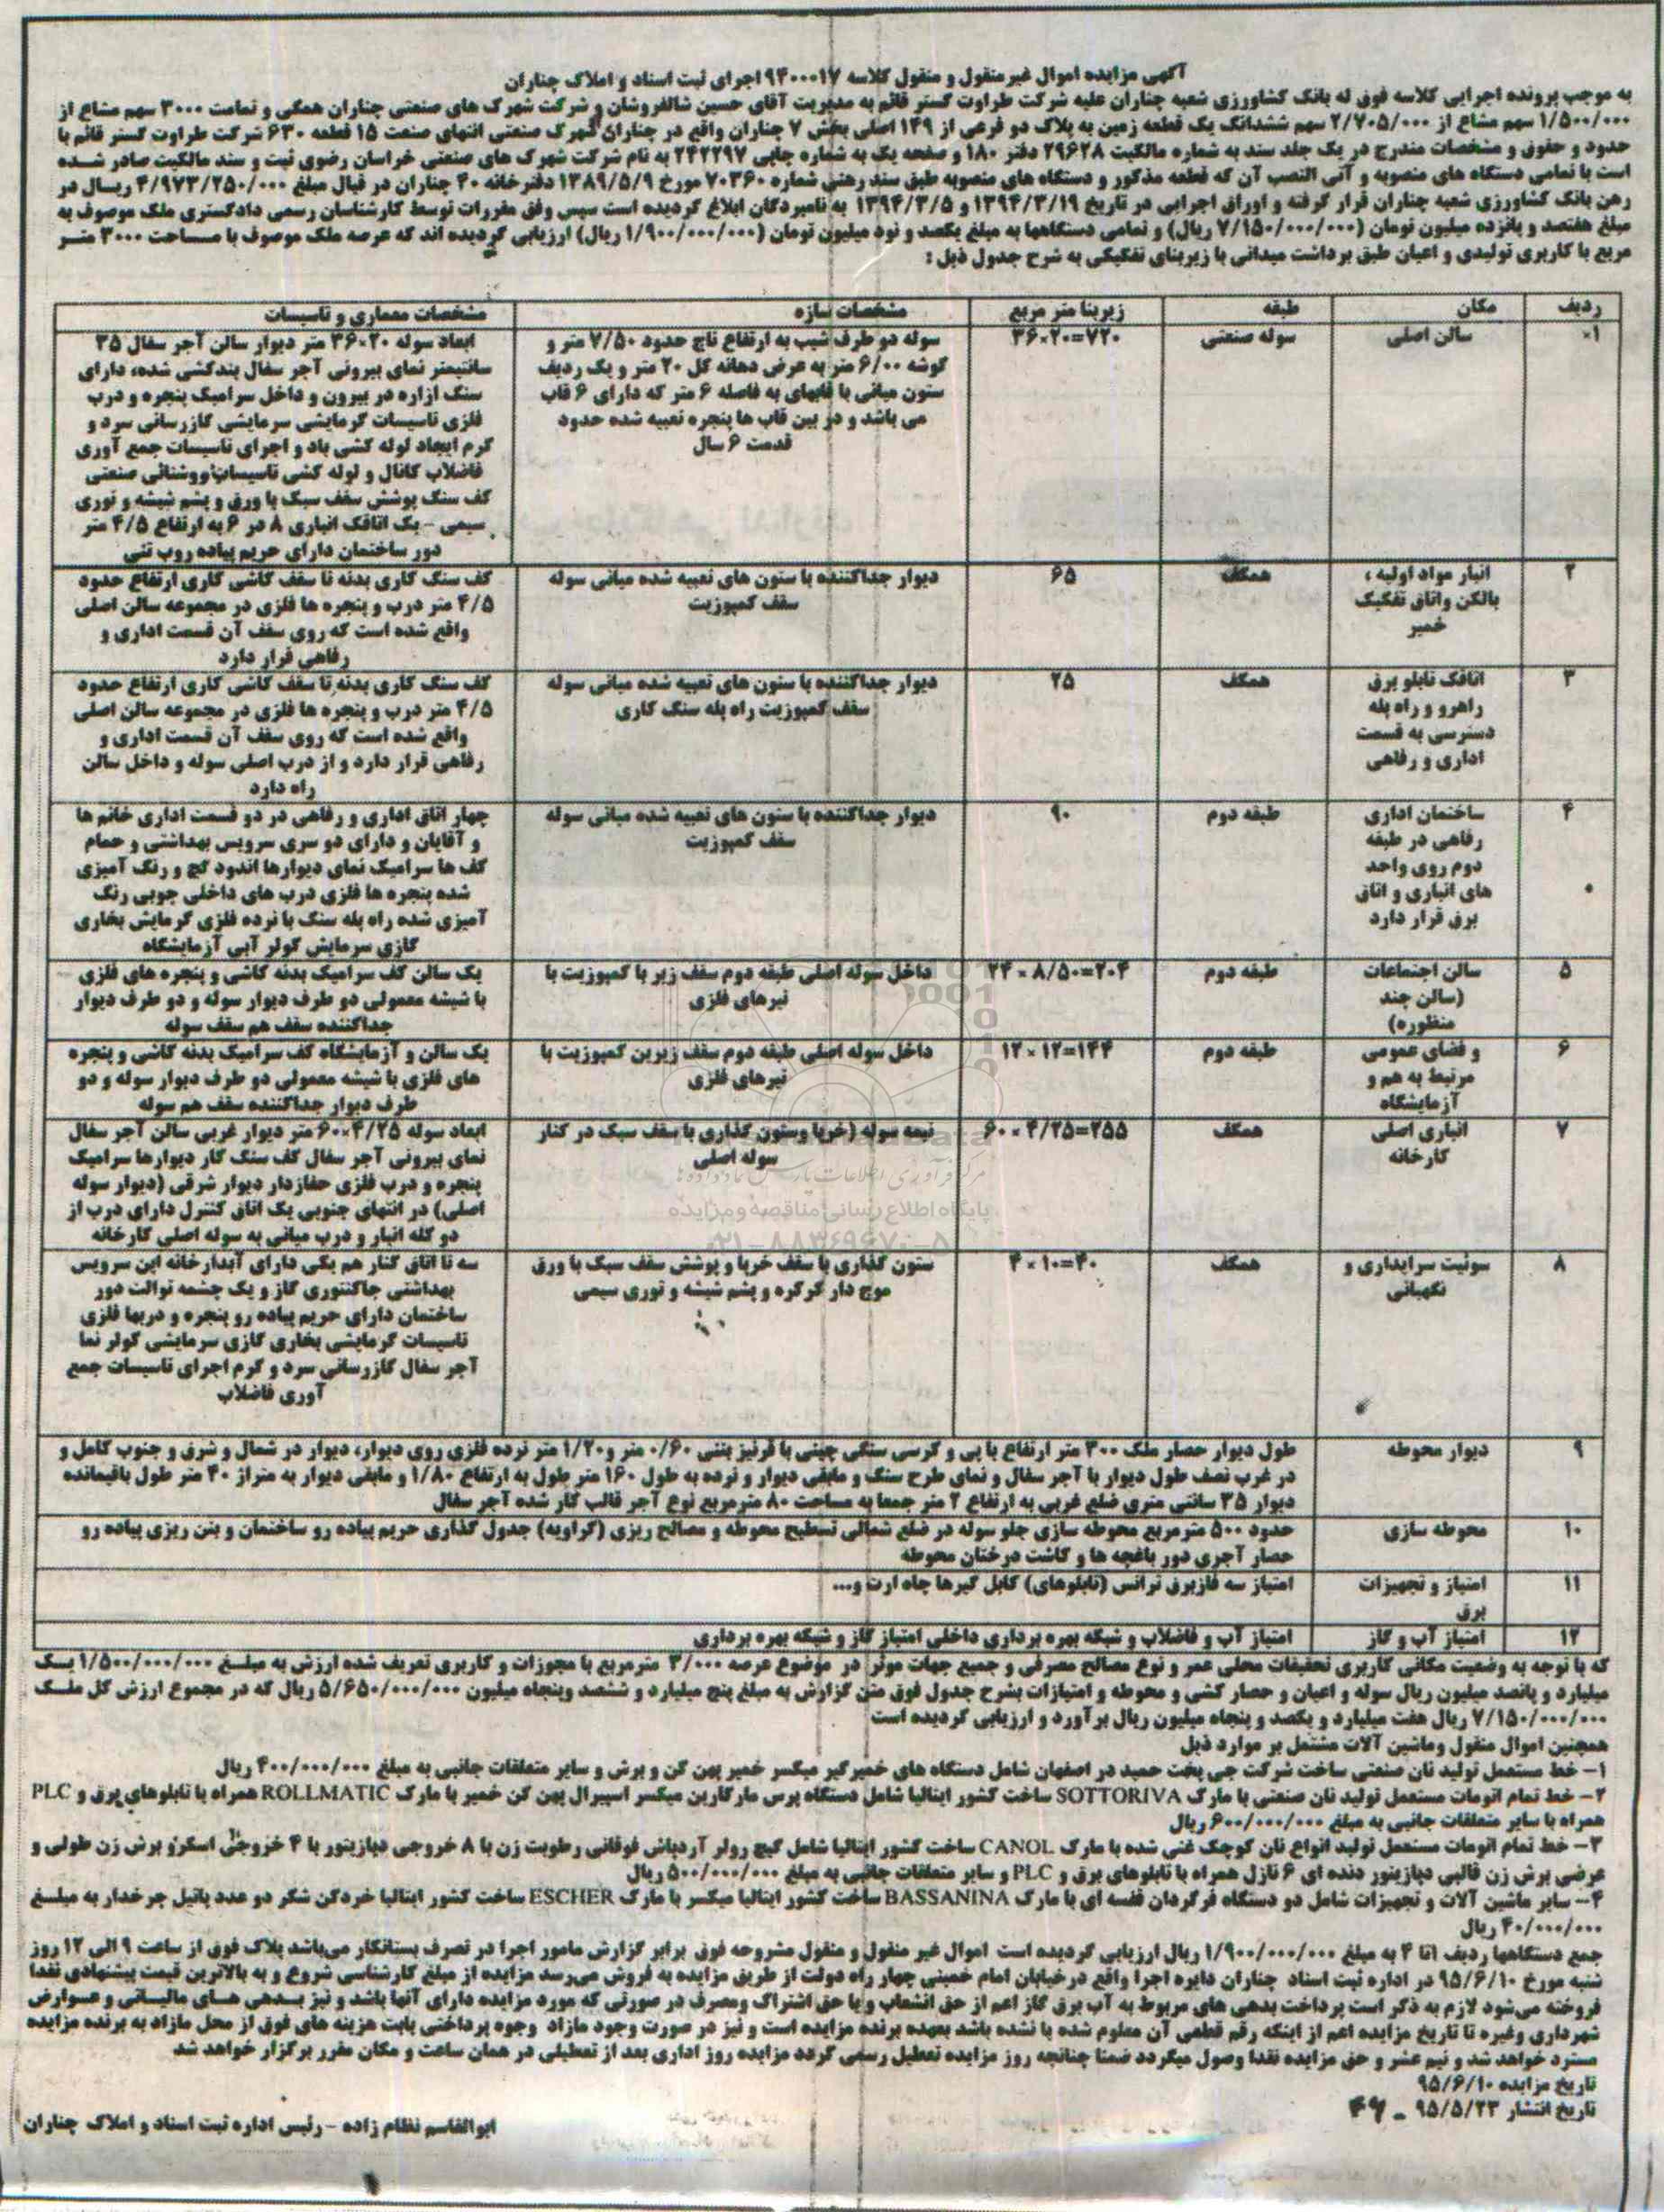 آگهی مزایده اموال غیرمنقول و منقول کلاسه ۹۴۰۰۰۱۷ اجرای ثبت اسناد و املاک چناران
به موجب پرونده اجرایی کلاسه فوق له بانک کشاورزی شعبه چناران علیه شرکت طراوت گستر قائم به مدیریت آقای حسین شالفروشان و شرکت شهرک های صنعتی چناران همگی و تمامت ۳۰۰۰ سهم مشاع از
۱/۵۰۰/۰۰۰ سهم مشاع از ۲/۷۰۵/۰۰۰ سهم ششدانگ یک قطعه زمین به پلاک دو فرعی از ۱۴۹ اصلی بخش ۷ چناران واقع در چناران شهرک صنعتی انتهای صنعت ۱۵ قطعه ۶۳۰ شرکت طراوت گستر قائم با
حدود و حقوق و مشخصات مندرج در یک جلد سند به شماره مالکیت ۲۹۶۲۸ دفتر ۱۸۰ و صفحه یک به شماره چاپی ۲۴۲۲۹۷ به نام شرکت شهرک های صنعتی خراسان رضوی ثبت و سند مالکیت صادر شده
است با تمامی دستگاه های منصوبه و آتی النصب آن که قطعه مذکور و دستگاه های منصوبه طبق سند رهنی شماره ۷۰۳۶۰ مورخ ۱۳۸۹/۵/۹ دفترخانه ۴۰ چناران در قبال مبلغ ۴/۹۷۳/۲۵۰/۰۰۰ ریال در
رهن بانک کشاورزی شعبه چناران قرار گرفته و اوراق اجرایی در تاریخ ۱۳۹۴/۳/۱۹ و ۱۳۹۴/۳/۵ به نامبردگان ابلاغ گردیده است سپس وفق مقررات توسط کارشناسان رسمی دادگستری ملک موصوف به
مبلغ هفتصد و پانزده میلیون تومان (۷/۱۵۰/۰۰۰/۰۰۰ ریال) و تمامی دستگاهها به مبلغ یکصد و نود میلیون تومان (۱/۹۰۰/۰۰۰/۰۰۰ ریال) ارزیابی گردیده اند که عرصه ملک موصوف با مساحت ۳۰۰۰ متر
مربع با کاربری تولیدی و اعیان طبق برداشت میدانی با زیربنای تفکیکی به شرح جدول ذیل :
ردیف مکان طبقه زیربنا متر مربع مشخصات سازه مشخصات معماری و تاسیسات
۱ سالن اصلی سوله صنعتی ۳۶×۲۰=۷۲۰ سوله دو طرف شیب به ارتفاع تاج حدود ۷/۵۰ متر و ابعاد سوله ۲۰×۳۶ متر دیوار سالن آجر سفال ۳۵
گوشه ۶/۰۰ متر به عرض دهانه کل ۲۰ متر و یک ردیف سانتیمتر نمای بیرونی آجر سفال بندکشی شده، دارای
ستون میانی با قابهای به فاصله ۶ متر که دارای ۶ قاب سنگ ازاره در بیرون و داخل سرامیک پنجره و درب
می باشد و در بین قاب ها پنجره تعبیه شده حدود فلزی تاسیسات گرمایشی سرمایشی گازرسانی سرد و
قدمت ۶ سال گرم ایجاد لوله کشی باد و اجرای تاسیسات جمع آوری
فاضلاب کانال و لوله کشی تاسیسات روشنائی صنعتی
کف سنگ پوشش سقف سبک با ورق و پشم شیشه و توری
سیمی - یک اتاقک انباری ۸ در ۶ به ارتفاع ۴/۵ متر
دور ساختمان دارای حریم پیاده رو بتنی
۲ انبار مواد اولیه ، همکف ۶۵ دیوار جداکننده با ستون های تعبیه شده میانی سوله کف سنگ کاری بدنه تا سقف کاشی کاری ارتفاع حدود
بالکن واتاق تفکیک سقف کمپوزیت ۴/۵ متر درب و پنجره ها فلزی در مجموعه سالن اصلی
خمیر واقع شده است که روی سقف آن قسمت اداری و
رفاهی قرار دارد
۳ اتاقک تابلو برق همکف ۲۵ دیوار جداکننده با ستون های تعبیه شده میانی سوله کف سنگ کاری بدنه تا سقف کاشی کاری ارتفاع حدود
راهرو و راه پله سقف کمپوزیت راه پله سنگ کاری ۴/۵ متر درب و پنجره ها فلزی در مجموعه سالن اصلی
دسترسی به قسمت واقع شده است که روی سقف آن قسمت اداری و
اداری و رفاهی رفاهی قرار دارد و از درب اصلی سوله و داخل سالن
راه دارد
۴ ساختمان اداری طبقه دوم ۹۰ دیوار جداکننده با ستون های تعبیه شده میانی سوله چهار اتاق اداری و رفاهی در دو قسمت اداری خانم ها
رفاهی در طبقه سقف کمپوزیت و آقایان و دارای دو سری سرویس بهداشتی و حمام
دوم روی واحد کف ها سرامیک نمای دیوارها اندود گچ و رنگ آمیزی
های انباری و اتاق شده پنجره ها فلزی درب های داخلی چوبی رنگ
برق قرار دارد آمیزی شده راه پله سنگ با نرده فلزی گرمایش بخاری
گازی سرمایش کولر آبی آزمایشگاه
۵ سالن اجتماعات طبقه دوم ۲۴×۸/۵۰=۲۰۴ داخل سوله اصلی طبقه دوم سقف زیر با کمپوزیت با یک سالن کف سرامیک بدنه کاشی و پنجره های فلزی
(سالن چند تیرهای فلزی با شیشه معمولی دو طرف دیوار سوله و دو طرف دیوار
منظوره) جداکننده سقف هم سقف سوله
۶ و فضای عمومی طبقه دوم ۱۲×۱۲=۱۴۴ داخل سوله اصلی طبقه دوم سقف زیرین کمپوزیت با یک سالن و آزمایشگاه کف سرامیک بدنه کاشی و پنجره
مرتبط به هم و تیرهای فلزی های فلزی با شیشه معمولی دو طرف دیوار سوله و دو
آزمایشگاه طرف دیوار جداکننده سقف هم سوله
۷ انباری اصلی همکف ۶۰×۴/۲۵=۲۵۵ نیمه سوله (خرپا وستون گذاری با سقف سبک در کنار ابعاد سوله ۴/۲۵×۶۰ متر دیوار غربی سالن آجر سفال
کارخانه سوله اصلی نمای بیرونی آجر سفال کف سنگ کار دیوارها سرامیک
پنجره و درب فلزی حفازدار دیوار شرقی (دیوار سوله
اصلی) در انتهای جنوبی یک اتاق کنترل دارای درب از
دو کله انبار و درب میانی به سوله اصلی کارخانه
۸ سوئیت سرایداری و همکف ۴×۱۰=۴۰ ستون گذاری با سقف خرپا و پوشش سقف سبک با ورق سه تا اتاق کنار هم یکی دارای آبدارخانه این سرویس
نگهبانی موج دار کرکره و پشم شیشه و توری سیمی بهداشتی جاکنتوری گاز و یک چشمه توالت دور
ساختمان دارای حریم پیاده رو پنجره و دربها فلزی
تاسیسات گرمایشی بخاری گازی سرمایشی کولر نما
آجر سفال گازرسانی سرد و گرم اجرای تاسیسات جمع
آوری فاضلاب
۹ دیوار محوطه طول دیوار حصار ملک ۳۰۰ متر ارتفاع با پی و کرسی سنگی چینی با قرنیز بتنی ۰/۶۰ متر و۱/۲۰ متر نرده فلزی روی دیوار، دیوار در شمال و شرق و جنوب کامل و
در غرب نصف طول دیوار با آجر سفال و نمای طرح سنگ و مابقی دیوار و نرده به طول ۱۶۰ متر طول به ارتفاع ۱/۸۰ و مابقی دیوار به متراژ ۴۰ متر طول باقیمانده
دیوار ۳۵ سانتی متری ضلع غربی به ارتفاع ۲ متر جمعا به مساحت ۸۰ مترمربع نوع آجر قالب کار شده آجر سفال
۱۰ محوطه سازی حدود ۵۰۰ مترمربع محوطه سازی جلو سوله در ضلع شمالی تسطیح محوطه و مصالح ریزی (گراویه) جدول گذاری حریم پیاده رو ساختمان و بتن ریزی پیاده رو
حصار آجری دور باغچه ها و کاشت درختان محوطه
۱۱ امتیاز و تجهیزات امتیاز سه فازبرق ترانس (تابلوهای) کابل گیرها چاه ارت و...
برق
۱۲ امتیاز آب و گاز امتیاز آب و فاضلاب و شبکه بهره برداری داخلی امتیاز گاز و شبکه بهره برداری
که با توجه به وضعیت مکانی کاربری تحقیقات محلی عمر و نوع مصالح مصرفی و جمیع جهات موثر در موضوع عرصه ۳/۰۰۰ مترمربع با مجوزات و کاربری تعریف شده ارزش به مبلغ ۱/۵۰۰/۰۰۰/۰۰۰ یک
میلیارد و پانصد میلیون ریال سوله و اعیان و حصار کشی و محوطه و امتیازات بشرح جدول فوق متن گزارش به مبلغ پنج میلیارد و ششصد وپنجاه میلیون ۵/۶۵۰/۰۰۰/۰۰۰ ریال که در مجموع ارزش کل ملک
۷/۱۵۰/۰۰۰/۰۰۰ ریال هفت میلیارد و یکصد و پنجاه میلیون ریال برآورد و ارزیابی گردیده است
همچنین اموال منقول وماشین آلات مشتمل بر موارد ذیل
۱- خط مستعمل تولید نان صنعتی ساخت شرکت جی پخت حمید در اصفهان شامل دستگاه های خمیرگیر میکسر خمیر پهن کن و برش و سایر متعلقات جانبی به مبلغ ۴۰۰/۰۰۰/۰۰۰ ریال
۲- خط تمام اتومات مستعمل تولید نان صنعتی با مارک SOTTORIVA ساخت کشور ایتالیا شامل دستگاه پرس مارگارین میکسر اسپیرال پهن کن خمیر با مارک ROLLMATIC همراه با تابلوهای برق و PLC
همراه با سایر متعلقات جانبی به مبلغ ۶۰۰/۰۰۰/۰۰۰ ریال
۳- خط تمام اتومات مستعمل تولید انواع نان کوچک غنی شده با مارک CANOL ساخت کشور ایتالیا شامل کیج رولر آردپاش فوقانی رطوبت زن با ۸ خروجی دپازیتور با ۴ خروجی اسکرو برش زن طولی و
عرضی برش زن قالبی دپازیتور دنده ای ۶ نازل همراه با تابلوهای برق و PLC و سایر متعلقات جانبی به مبلغ ۵۰۰/۰۰۰/۰۰۰ ریال
۴- سایر ماشین آلات و تجهیزات شامل دو دستگاه فرگردان قفسه ای با مارک BASSANINA ساخت کشور ایتالیا میکسر با مارک ESCHER ساخت کشور ایتالیا خردکن شکر دو عدد پاتیل چرخدار به مبلغ
۴۰/۰۰۰/۰۰۰ ریال
جمع دستگاهها ردیف ۱تا ۴ به مبلغ ۱/۹۰۰/۰۰۰/۰۰۰ ریال ارزیابی گردیده است اموال غیر منقول و منقول مشروحه فوق برابر گزارش مامور اجرا در تصرف بستانکار می‌باشد پلاک فوق از ساعت ۹ الی ۱۲ روز
شنبه مورخ ۹۵/۶/۱۰ در اداره ثبت اسناد چناران دایره اجرا واقع درخیابان امام خمینی چهار راه دولت از طریق مزایده به فروش می‌رسد مزایده از مبلغ کارشناسی شروع و به بالاترین قیمت پیشنهادی نقدا
فروخته می‌شود لازم به ذکر است پرداخت بدهی های مربوط به آب برق گاز اعم از حق انشعاب و یا حق اشتراک ومصرف در صورتی که مورد مزایده دارای آنها باشد و نیز بدهی های مالیاتی و عوارض
شهرداری وغیره تا تاریخ مزایده اعم از اینکه رقم قطعی آن معلوم شده یا نشده باشد بعهده برنده مزایده است و نیز در صورت وجود مازاد وجوه پرداختی بابت هزینه های فوق از محل مازاد به برنده مزایده
مسترد خواهد شد و نیم عشر و حق مزایده نقدا وصول میگردد ضمنا چنانچه روز مزایده تعطیل رسمی گردد مزایده روز اداری بعد از تعطیلی در همان ساعت و مکان مقرر برگزار خواهد شد
تاریخ مزایده ۹۵/۶/۱۰
تاریخ انتشار ۹۵/۵/۲۳ - ۴۶
ابوالقاسم نظام زاده - رئیس اداره ثبت اسناد و املاک چناران
پایگاه اطلاع رسانی مناقصه و مزایده
۰۲۱-۸۸۳۴۹۶۷۰-۵